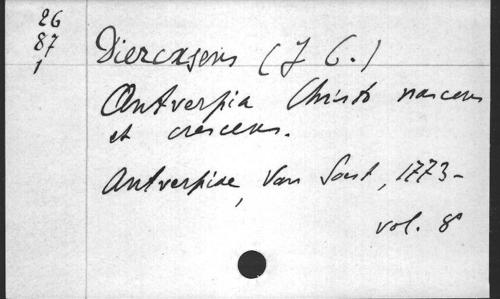 26
87
1
Diercxsens (J C.)
Antverpia Christo nascens
et crescens.
Antverpiae, Van Soest, 1773-
vol. 8°